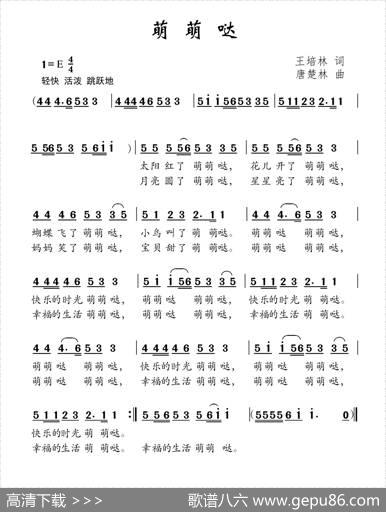 萌 萌 哒
1=E 4/4
王培林 词
轻快 活泼 跳跃地
唐楚林 曲
(4 4 4· 6 5 3 3 | 4 4 4 4 6 5 3 3 | 5 i i 5 6 5 3 3 5 | 5 1 1 2 3 2· 1 1 |
5 5 6 5 3 5 6 i i ) | 5 5 5 5 6 5 3 | 5 5 5 5 6 5 3 |
太阳 红了 萌萌 哒， 花儿 开了 萌萌 哒，
月亮 圆了 萌萌 哒， 星星 亮了 萌萌 哒，
4 4 4 4 6 5 3 3 5 | 5 1 2 3 2· 1 1 | 4 4 4· 6 5 3 |
蝴蝶 飞了 萌萌 哒， 小鸟 叫了 萌萌 哒。 萌萌 哒 萌萌 哒，
妈妈 笑了 萌萌 哒， 宝贝 甜了 萌萌 哒。 萌萌 哒 萌萌 哒，
4 4 4 4 6 5 3 3 | 5 i i 5 6 5 3 3 5 | 5 1 1 2 3 2· 1 1 |
快乐的时光 萌萌 哒， 萌萌 哒 萌萌 哒， 快乐的时光 萌萌 哒。
幸福的生活 萌萌 哒， 萌萌 哒 萌萌 哒， 幸福的生活 萌萌 哒。
4 4 4· 6 5 3 | 4 4 4 4 6 5 3 3 | 5 i i 5 6 3 3 5 |
萌萌 哒 萌萌 哒， 快乐的时光 萌萌 哒， 萌萌 哒 萌萌 哒，
萌萌 哒 萌萌 哒， 幸福的生活 萌萌 哒， 萌萌 哒 萌萌 哒，
5 1 1 2 3 2· 1 1 :| 5 5 6 5 3 5 6 i i | (5 5 5 5 5 6 i i· 0) ‖
快乐的时光 萌 萌哒。
幸福的生活 萌 萌哒。 幸福的生活 萌 萌哒。
高清下载 >>>
歌谱八六 www.gepu86.com